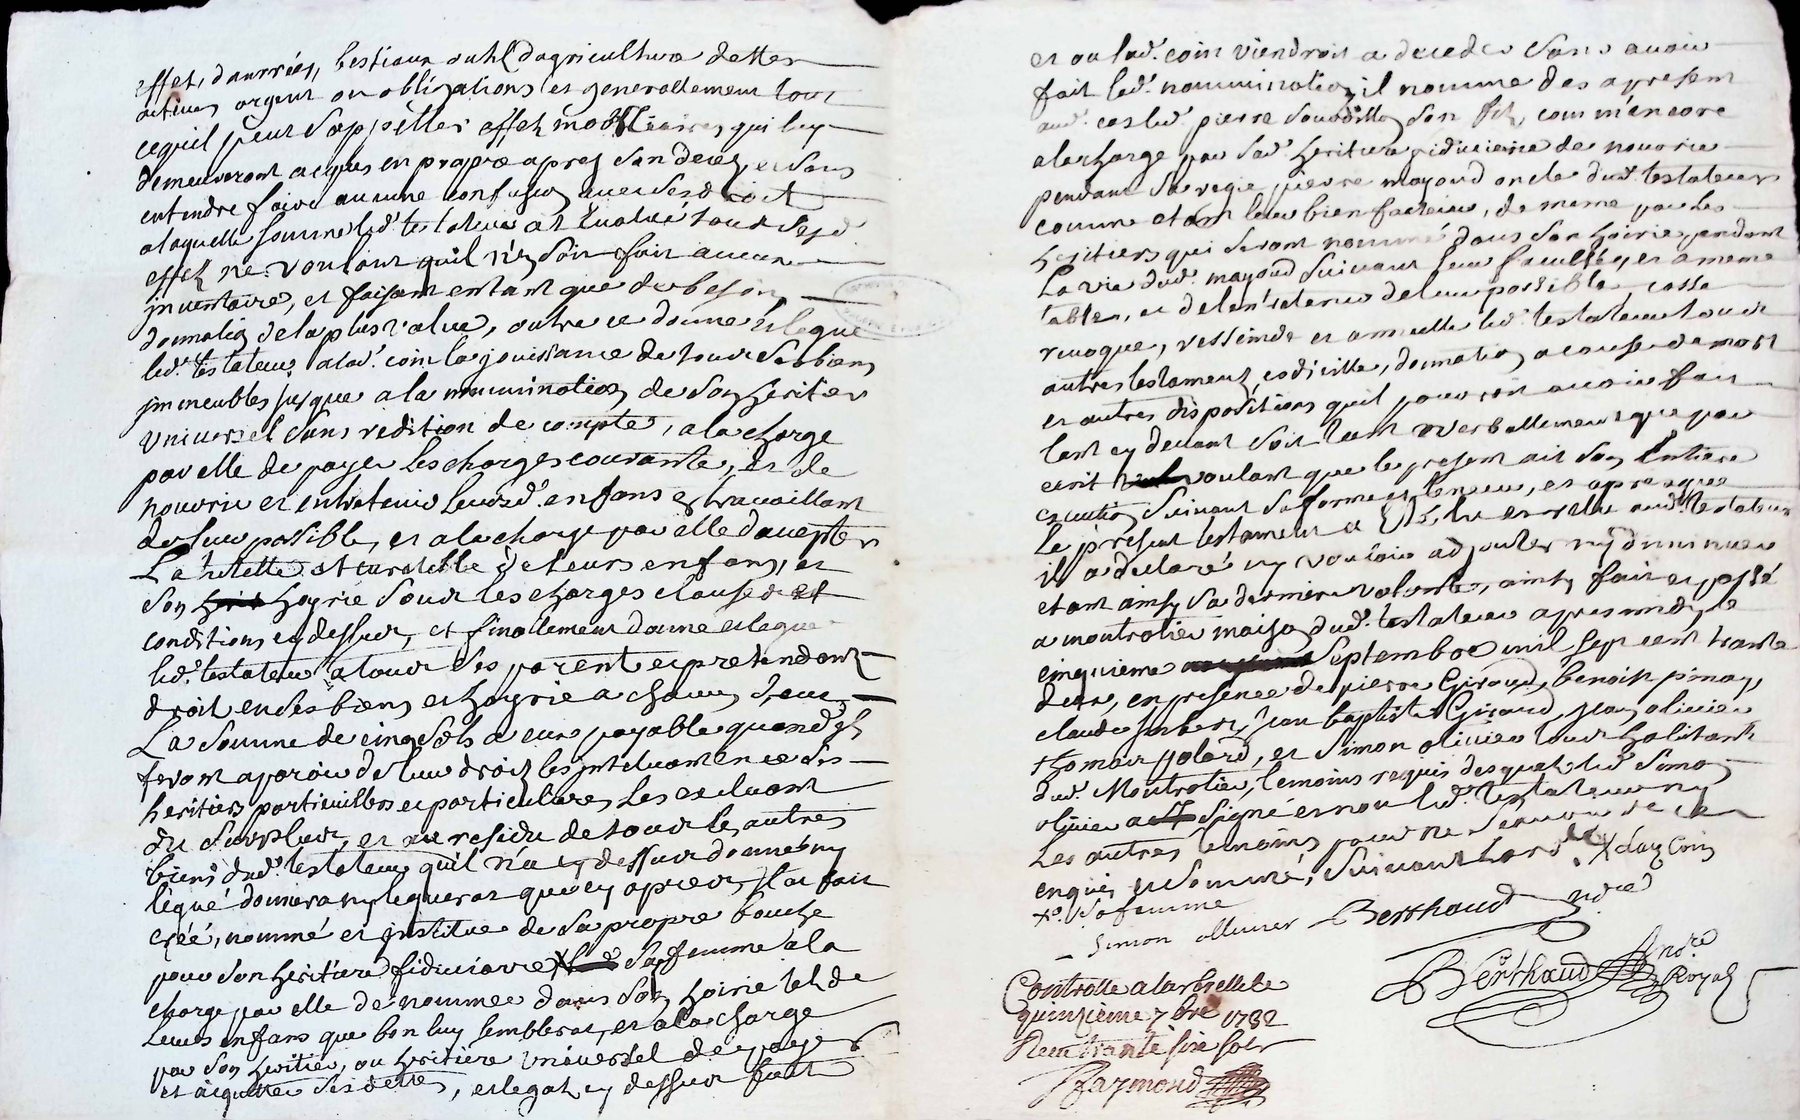 effet, danrrées, bestiaux outil dagriculture dettes
actives argent ou obligations et generallement tout
cequil peut sappeller effet mobiliaires qui luy
demeureront acquis en propre apres son deces, et sans
entendre faire aucune confusion avec ses droits
a laquelle somme led. testateur at Evalué tous sesd.
effet ne voulant quil n'en soit fait aucun
inventaire, et faisant entant que de besoin
donnation de la plus value, outre ce donne et legue
led. testateur a lad. coin la jouissance de tous ses biens
immeubles jusque a la nommination de son heritier
universel sans redition de compte, a la charge
par elle de payer les charges courante, et de
nourrir et entretenir leursd. enfans en travaillant
de leur possible, et a la charge par elle daccepter
La tutelle et curatelle de leurs enfans, et
son hoyrie sous les charges clause et
conditions cy dessus, et finallement donne et legue
led. testateur a tous ses parents et pretendant
droit en ses biens et hoyrie a chacun deux
La somme de cinq sols a eux payable quand ils
feront aparoir de leur droit les instituant en ce ses
heritiers particulliers et particulieres les excluant
du surplus, et au residu de tous les autres
biens dud. testateur qu'il n'a cy dessus donné ny
légué donnera ny leguerat que cy apres, il at fait
créé, nommé et institue de sa propre bouche
pour son heritiere fiduciaire X sa femme a la
charge par elle de nommer dans son hoirie tel de
leurs enfans que bon luy semblerat, et a la charge
par son heritier, ou heritiere universel de payer
et acquitter ses dettes, et legat cy dessus fait
et ou lad. coin viendroit a deceder sans avoir
fait led. nommination il nomme des apresent
aud. cas led. pierre son fils, comm'encore
a la charge par sad. heritiere fiduciaire de nourrir
pendant sa vie pierre mayoud oncle dud. testateur
comme etant leur bienfaiteur, de meme par les
heritiers qui seront nommé dans son hoirie, pendant
La vie dud. mayoud suivant leur facultés, et a meme
table, et de l'entretenir de leur possible casse
revoque, ressinde et annulle led. testateur tous
autres testament, codicille, donnation a cause de mort
et autres dispositions quil pourroit avoir fait
tant cy devant soit tant verballement que par
ecrit voulant que le present ait son Entiere
execution suivant sa forme et teneur, et apres que
le present testament a Eté lu et relu aud. testateur
il a declaré ny vouloir adjouter ny diminuer
etant ainsy sa derniere volonté, ainsy fait et passé
a montrotier maison dud. testateur apres midy le
cinquieme septembre mil sept cent trante
deux, en presence de pierre Giroud, benoist pinay,
claude Jmbert, jean baptiste Giraud, jean olivier
thomas polard, et simon olivier tous habitant
dud. Montrotier, temoins requis desquels led. simon
olivier a signé et non led. testateur ny
les autres temoins pour ne scavoir de ce
enquis et sommé, suivant lord.ce X clauz Coin
X. sa femme
Simon ollivier Berthaud
Berthaud no.re Royal
Controllé a larbresle le
quinzieme 7bre 1732
Receu trante six sols
Raymond